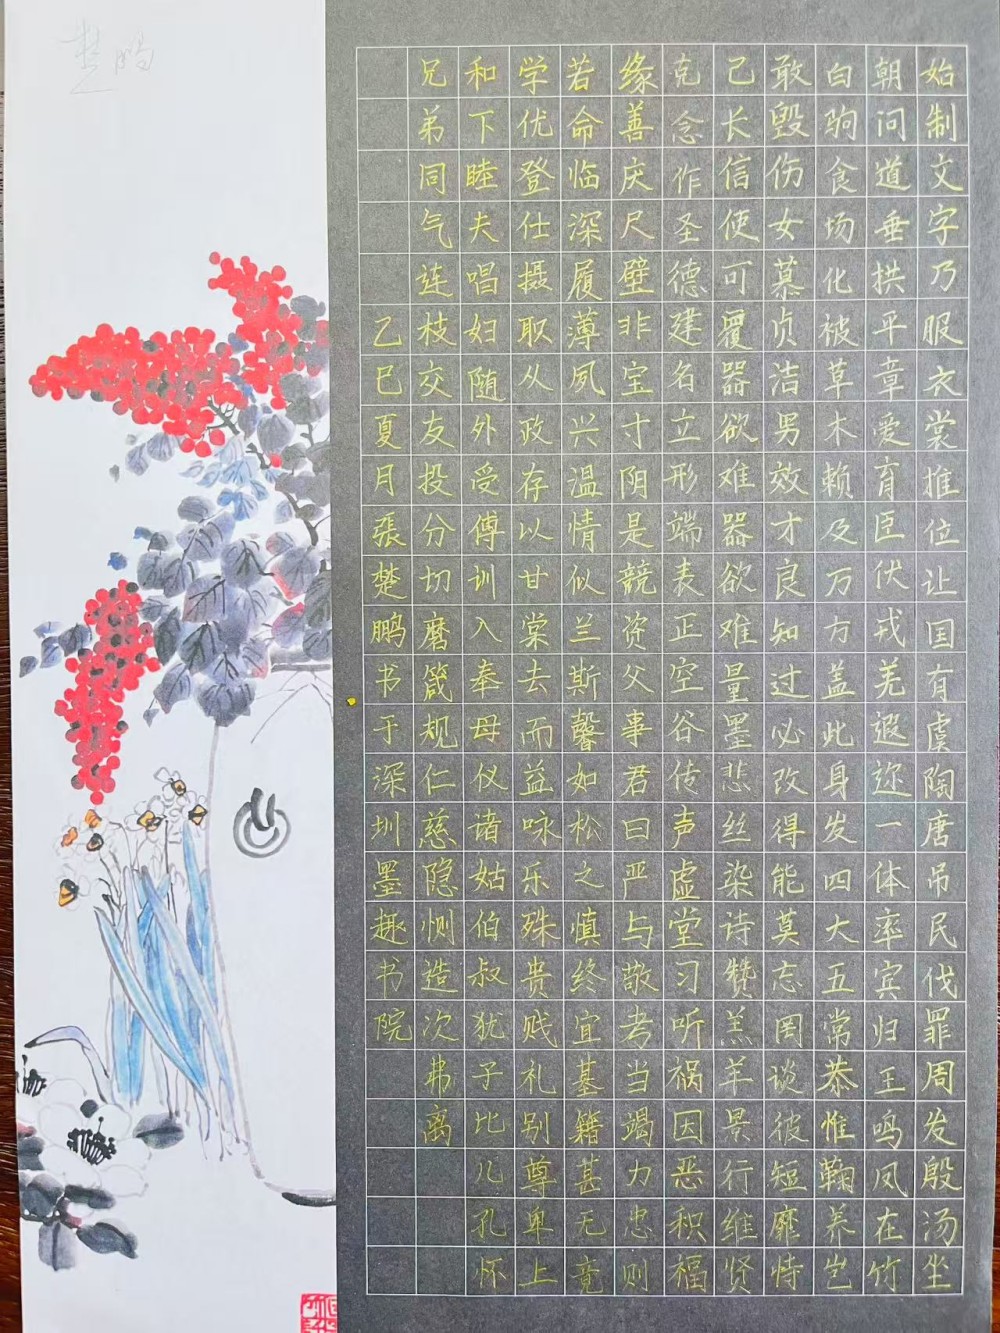 始制文字乃服衣裳推位让国有虞陶唐吊民伐罪周发殷汤坐
朝问道垂拱平章爱育臣伏戎羌遐迩一体率宾归王鸣凤在竹
白驹食场化被草木赖及万方盖此身发四大五常恭惟鞠养岂
敢毁伤女慕贞洁男效才良知过必改得能莫忘罔谈彼短靡恃
己长信使可覆器欲难器欲难量墨悲丝染诗赞羔羊景行维贤
克念作圣德建名立形端表正空谷传声虚堂习听祸因恶积福
缘善庆尺璧非宝寸阴是競资父事君曰严与敬孝当竭力忠则
若命临深履薄夙兴温情似兰斯馨如松之慎终宜基籍甚无竟
学优登仕摄职从政存以甘棠去而益咏乐殊贵贱礼别尊卑上
和下睦夫唱妇随外受傅训入奉母仪诸姑伯叔犹子比儿孔怀
兄弟同气连枝交友投分切磨箴规仁慈隐恻造次弗离
乙巳夏月張楚鹏书于深圳墨趣书院
楚鹏